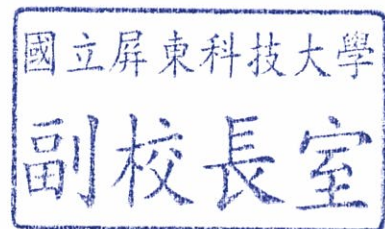 國立屏東科技大學
副校長室